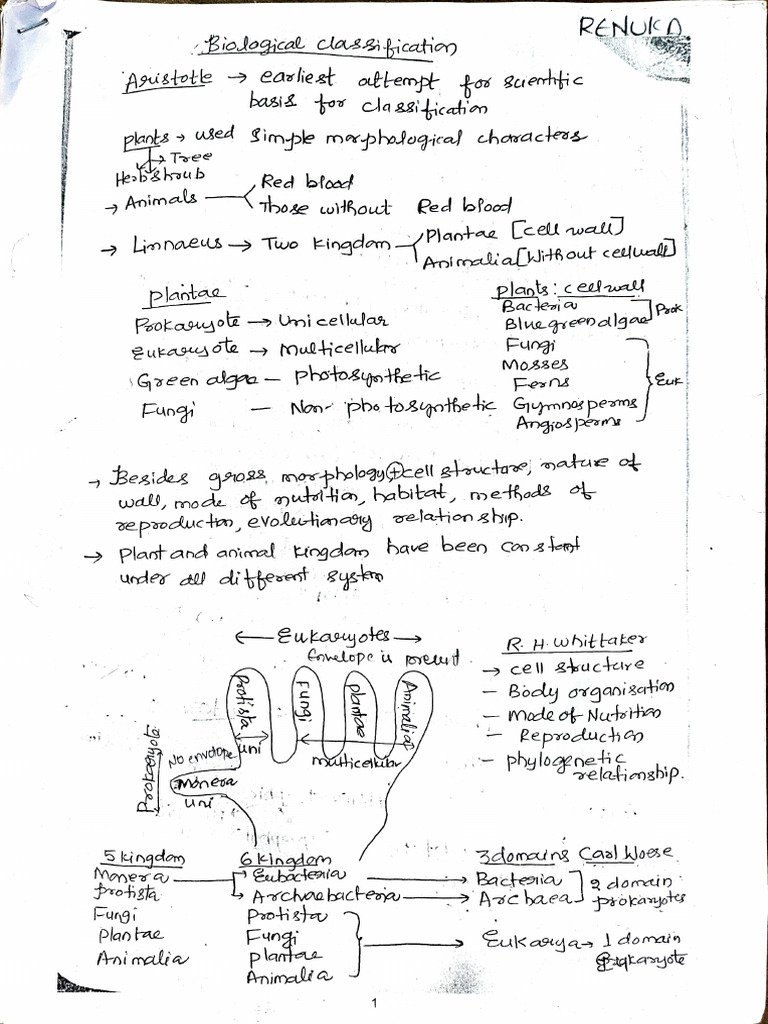 RENUKA
Biological classification
Aristotle → earliest attempt for scientific
basis for classification
Plants → used simple morphological characters
Tree
Herb shrub
→ Animals
Red blood
Those without Red blood
→ Linnaeus → Two kingdom
Plantae [cell wall]
Animalia [Without cellwall]
Plantae
Prokaryote → Unicellular
Eukaryote → Multicellular
Green algae — Photosynthetic
Fungi — Non-photosynthetic
Plants: cellwall
Bacteria
Blue green algae
Prok
Fungi
Mosses
Ferns
Gymnosperms
Angiosperms
Euk
→ Besides gross morphology + cell structure, nature of
wall, mode of nutrition, habitat, methods of
reproduction, evolutionary relationship.
→ Plant and animal kingdom have been constant
under all different system
← Eukaryotes →
Envelope is present
Protista
Fungi
Plantae
Animalia
uni
multicellular
Prokaryote
No envelope
Monera
uni
R. H. Whittaker
→ cell structure
— Body organisation
— Mode of Nutrition
— Reproduction
— phylogenetic
relationship.
5 kingdom
Monera
Protista
Fungi
Plantae
Animalia
6 kingdom
→ Eubacteria
→ Archaebacteria
Protista
Fungi
Plantae
Animalia
3 domains Carl Woese
Bacteria
Archaea
2 domain
prokaryotes
Eukarya → 1 domain
1